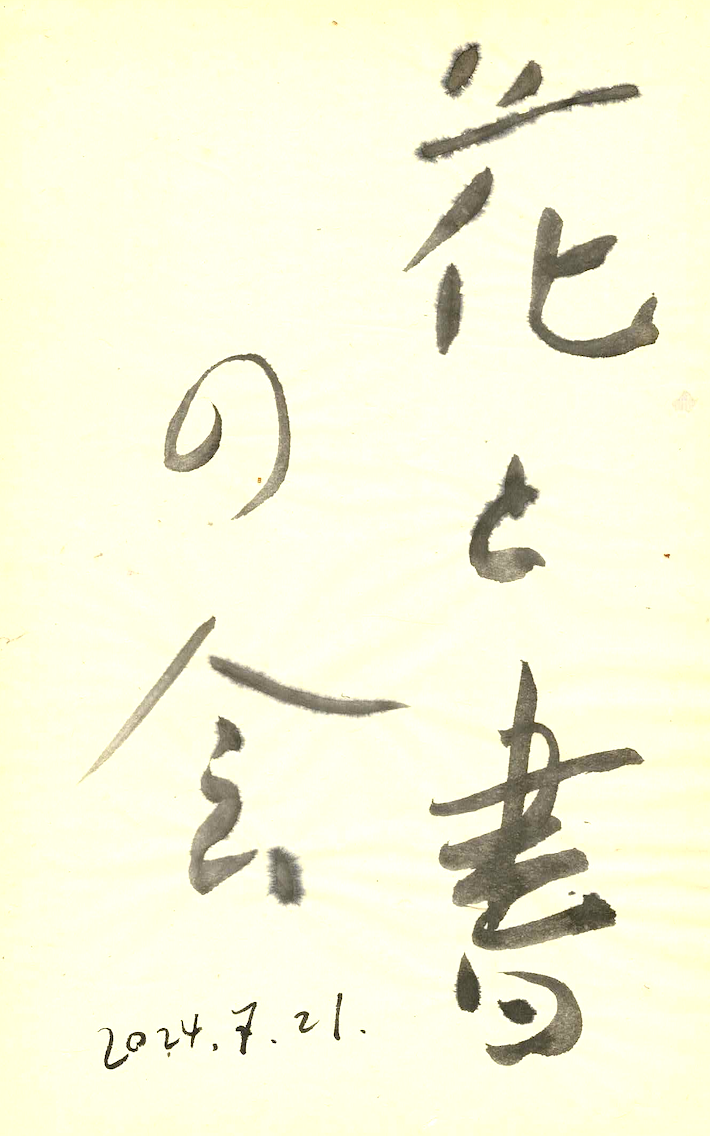 花と書
の会
2024.7.21.